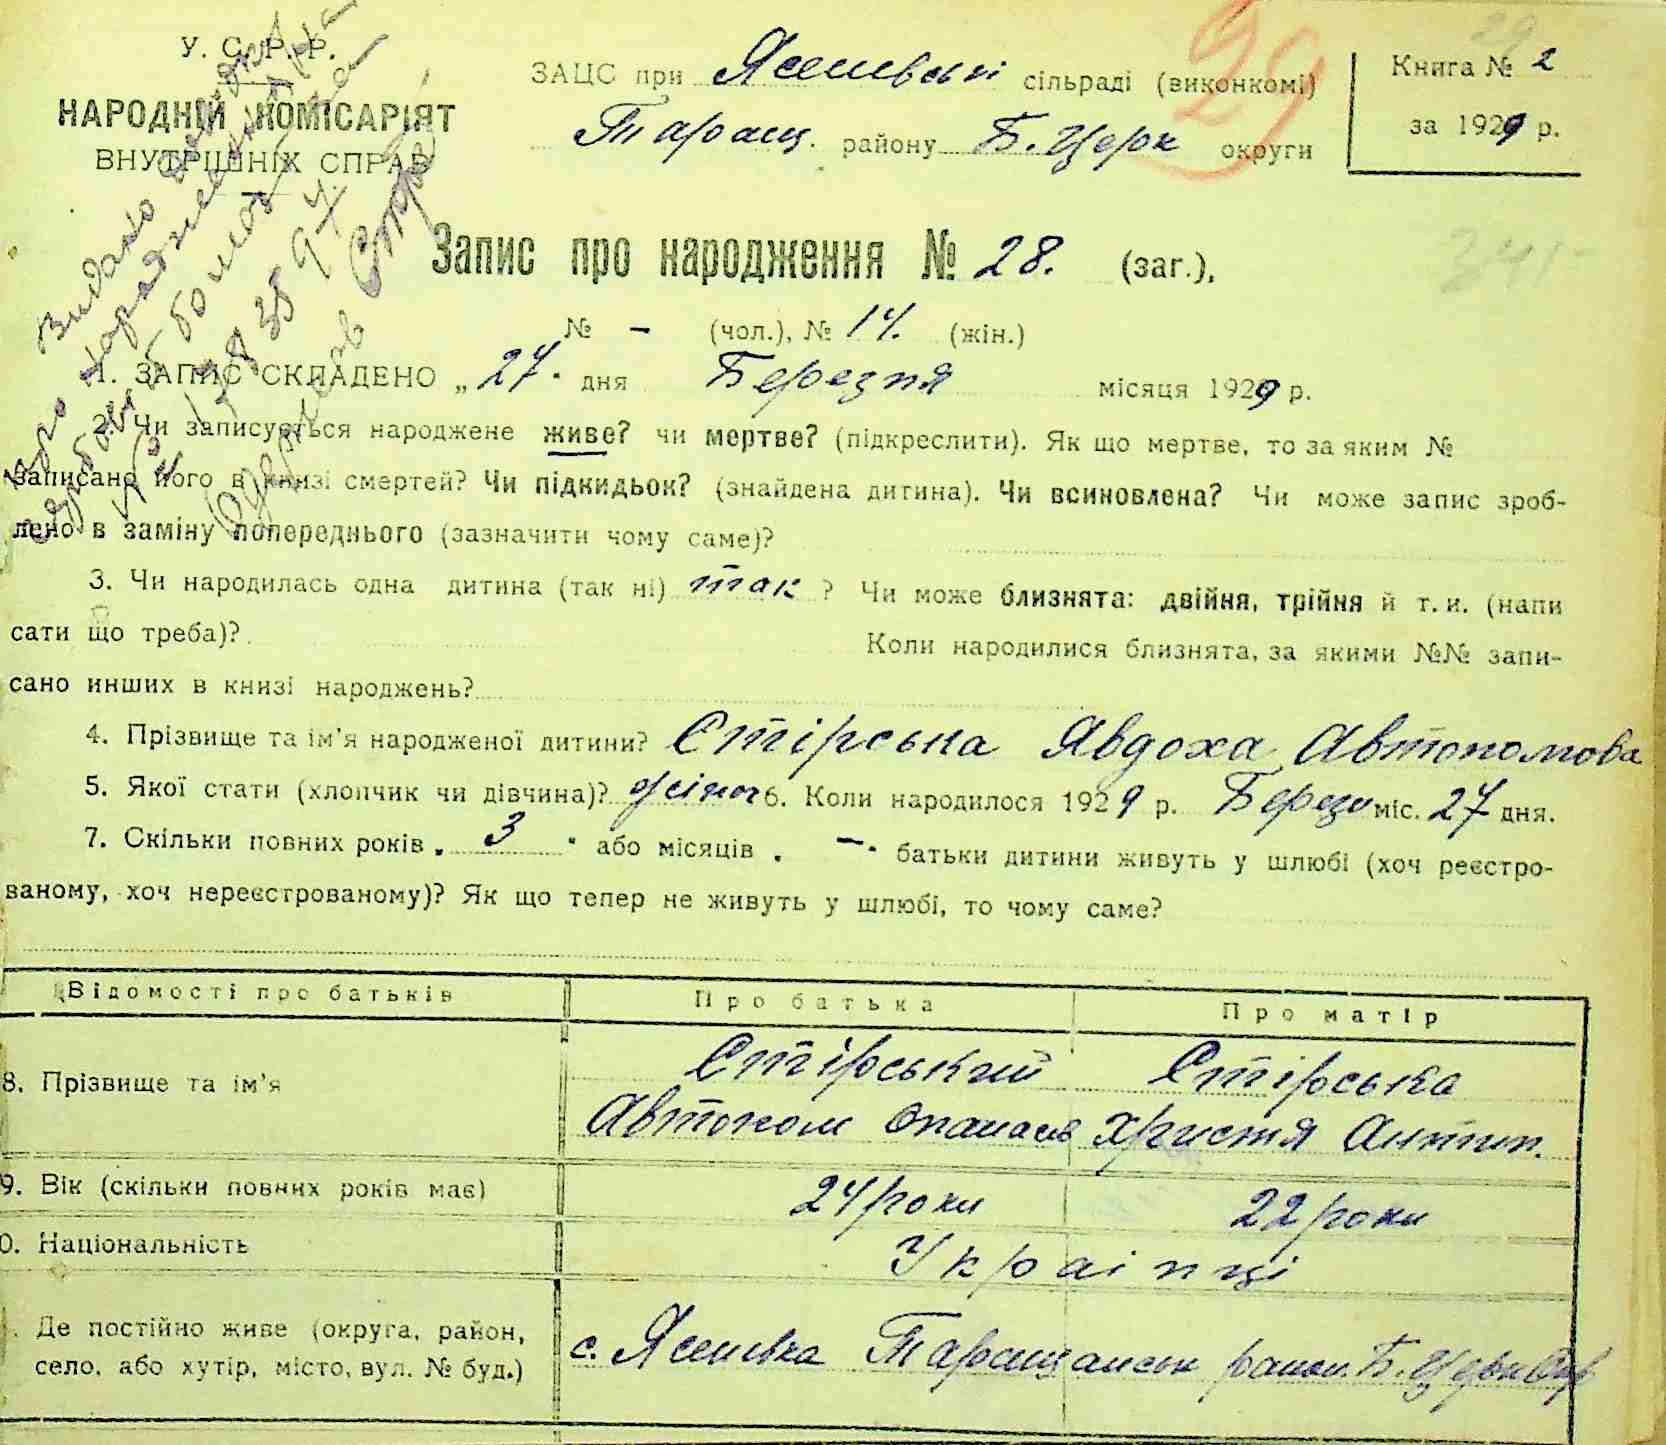 У. С. Р. Р.
НАРОДНІЙ КОМІСАРІЯТ
ВНУТРІШНІХ СПРАВ
ЗАЦС при Ясенівські сільраді (виконкомі)
Таращ. району Б. Церк округи
29
Книга № 2
за 1929 р.
Видано
про народження
Запис про народження № 28. (заг.),
№ – (чол.), № 14. (жін.)
1. ЗАПИС СКЛАДЕНО „ 27 " дня Березня місяця 1929 р.
2. Чи записується народжене живе? чи мертве? (підкреслити). Як що мертве, то за яким №
записано його в книзі смертей? Чи підкидьок? (знайдена дитина). Чи всиновлена? Чи може запис зроб-
лено в заміну попереднього (зазначити чому саме)?
3. Чи народилась одна дитина (так ні) так ? Чи може близнята: двійня, трійня й т. и. (напи
сати що треба)? Коли народилися близнята, за якими №№ запи-
сано инших в книзі народжень?
4. Прізвище та ім'я народженої дитини? Стірська Явдоха Автономова
5. Якої стати (хлопчик чи дівчина)? жіноч 6. Коли народилося 1929 р. Березн міс. 27 дня.
7. Скільки повних років „ 3 " або місяців „ – " батьки дитини живуть у шлюбі (хоч реєстро-
ваному, хоч нереєстрованому)? Як що тепер не живуть у шлюбі, то чому саме?
Відомості про батьків Про батька Про матір
8. Прізвище та ім'я Стірський Стірська
Автоном Опанасів Христя Антип.
9. Вік (скільки повних років має) 24 роки 22 роки
0. Національність Українці
Де постійно живе (округа, район,
село, або хутір, місто, вул. № буд.) с. Ясенівка Таращанськ район. Б. Церк Окр